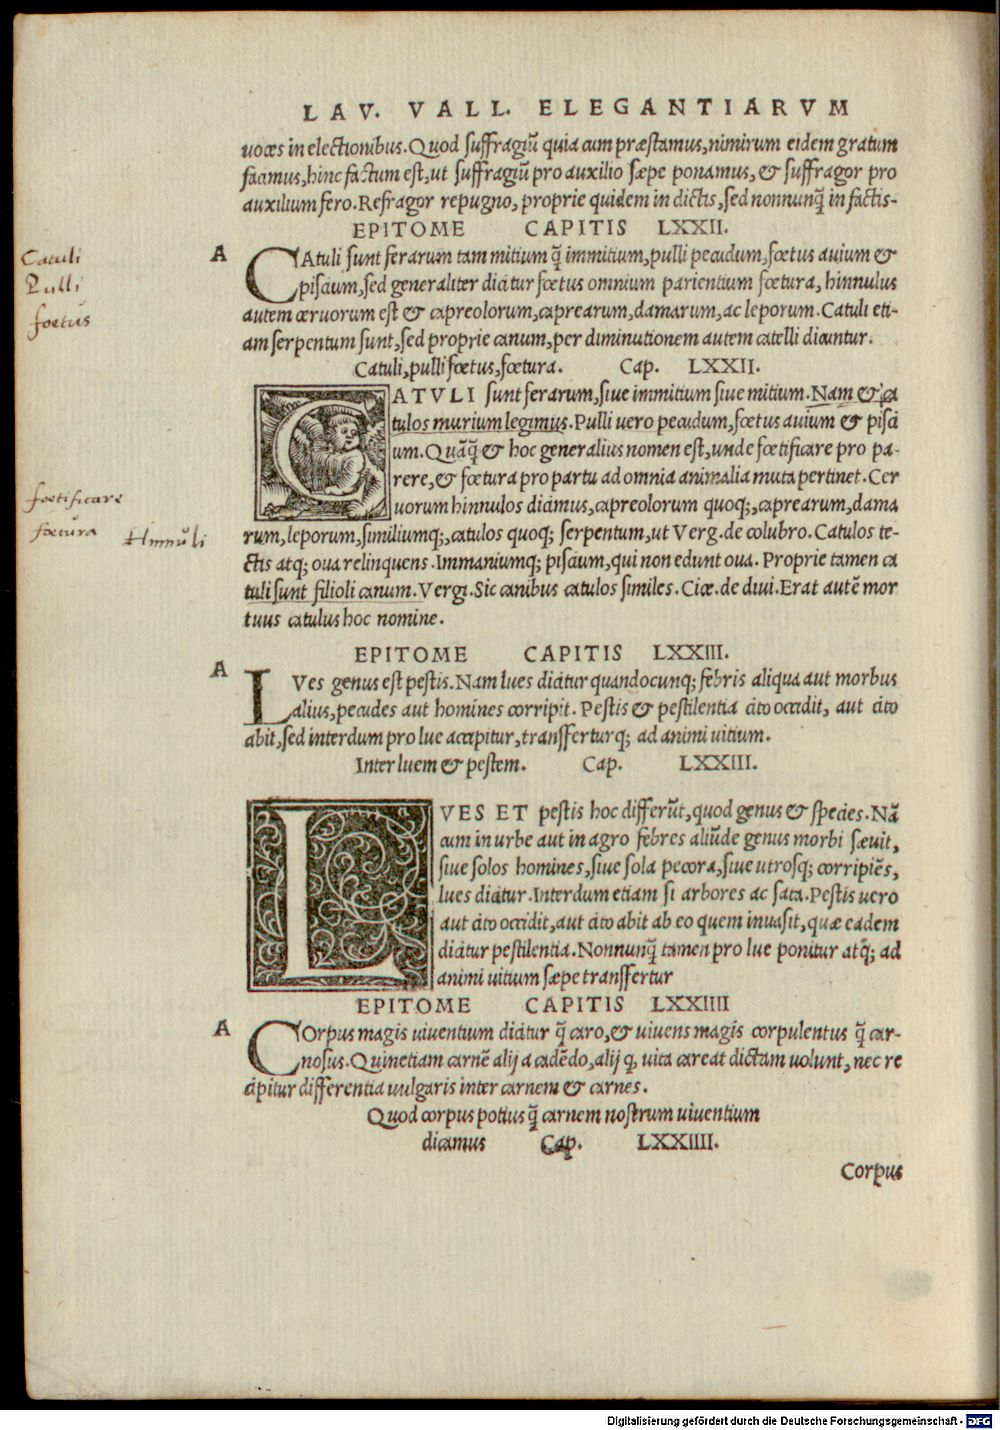 LAV. VALL. ELEGANTIARVM
uoces in electionibus. Quod suffragiũ quia cum præstamus, nimirum eidem gratum
facimus, hinc factum est, ut suffragiũ pro auxilio sæpe ponamus, & suffragor pro
auxilium fero. Refragor repugno, proprie quidem in dictis, sed nonnunq̃ in factis-
EPITOME CAPITIS LXXII.
Catuli
Pulli
foetus
A
CAtuli sunt ferarum tam mitium q̃ immitium, pulli pecudum, fœtus auium &
piscium, sed generaliter dicitur fœtus omnium parientium fœtura, hinnulus
autem ceruorum est & capreolorum, caprearum, damarum, ac leporum. Catuli eti-
am serpentum sunt, sed proprie canum, per diminutionem autem catelli dicuntur.
Catuli, pulli fœtus, fœtura. Cap. LXXII.
CATVLI sunt ferarum, siue immitium siue mitium. Nam & ca
tulos murium legimus. Pulli uero pecudum, fœtus auium & pisci
um. Quãq̃ & hoc generalius nomen est, unde fœtificare pro pa-
rere, & fœtura pro partu ad omnia animalia muta pertinet. Cer
uorum hinnulos dicimus, capreolorum quoq;, caprearum, dama
rum, leporum, similiumq;, catulos quoq; serpentum, ut Verg. de colubro. Catulos te-
ctis atq; oua relinquens. Immaniumq; piscium, qui non edunt oua. Proprie tamen ca
tuli sunt filioli canum. Vergi. Sic canibus catulos similes. Cice. de diui. Erat autẽ mor
tuus catulus hoc nomine.
foetificare
foetura
Hinnuli
EPITOME CAPITIS LXXIII.
A
LVes genus est pestis. Nam lues dicitur quandocunq; febris aliqua aut morbus
alius, pecudes aut homines corripit. Pestis & pestilentia cito occidit, aut cito
abit, sed interdum pro lue accipitur, transferturq; ad animi uitium.
Inter luem & pestem. Cap. LXXIII.
LVES ET pestis hoc differũt, quod genus & species. Nã
cum in urbe aut in agro febres aliũde genus morbi sæuit,
siue solos homines, siue sola pecora, siue utrosq; corripiẽs,
lues dicitur. Interdum etiam si arbores ac sata. Pestis uero
aut cito occidit, aut cito abit ab eo quem inuasit, quæ eadem
dicitur pestilentia. Nonnunq̃ tamen pro lue ponitur atq̃; ad
animi uitium sæpe transfertur
EPITOME CAPITIS LXXIIII
A
COrpus magis uiuentium dicitur q̃ caro, & uiuens magis corpulentus q̃ car-
nosus. Quinetiam carnẽ alij a cadẽdo, alij q, uita careat dictam uolunt, nec re
cipitur differentia uulgaris inter carnem & carnes.
Quod corpus potius q̃ carnem nostrum uiuentium
dicamus Cap. LXXIIII.
Corpus
Digitalisierung gefördert durch die Deutsche Forschungsgemeinschaft - DFG